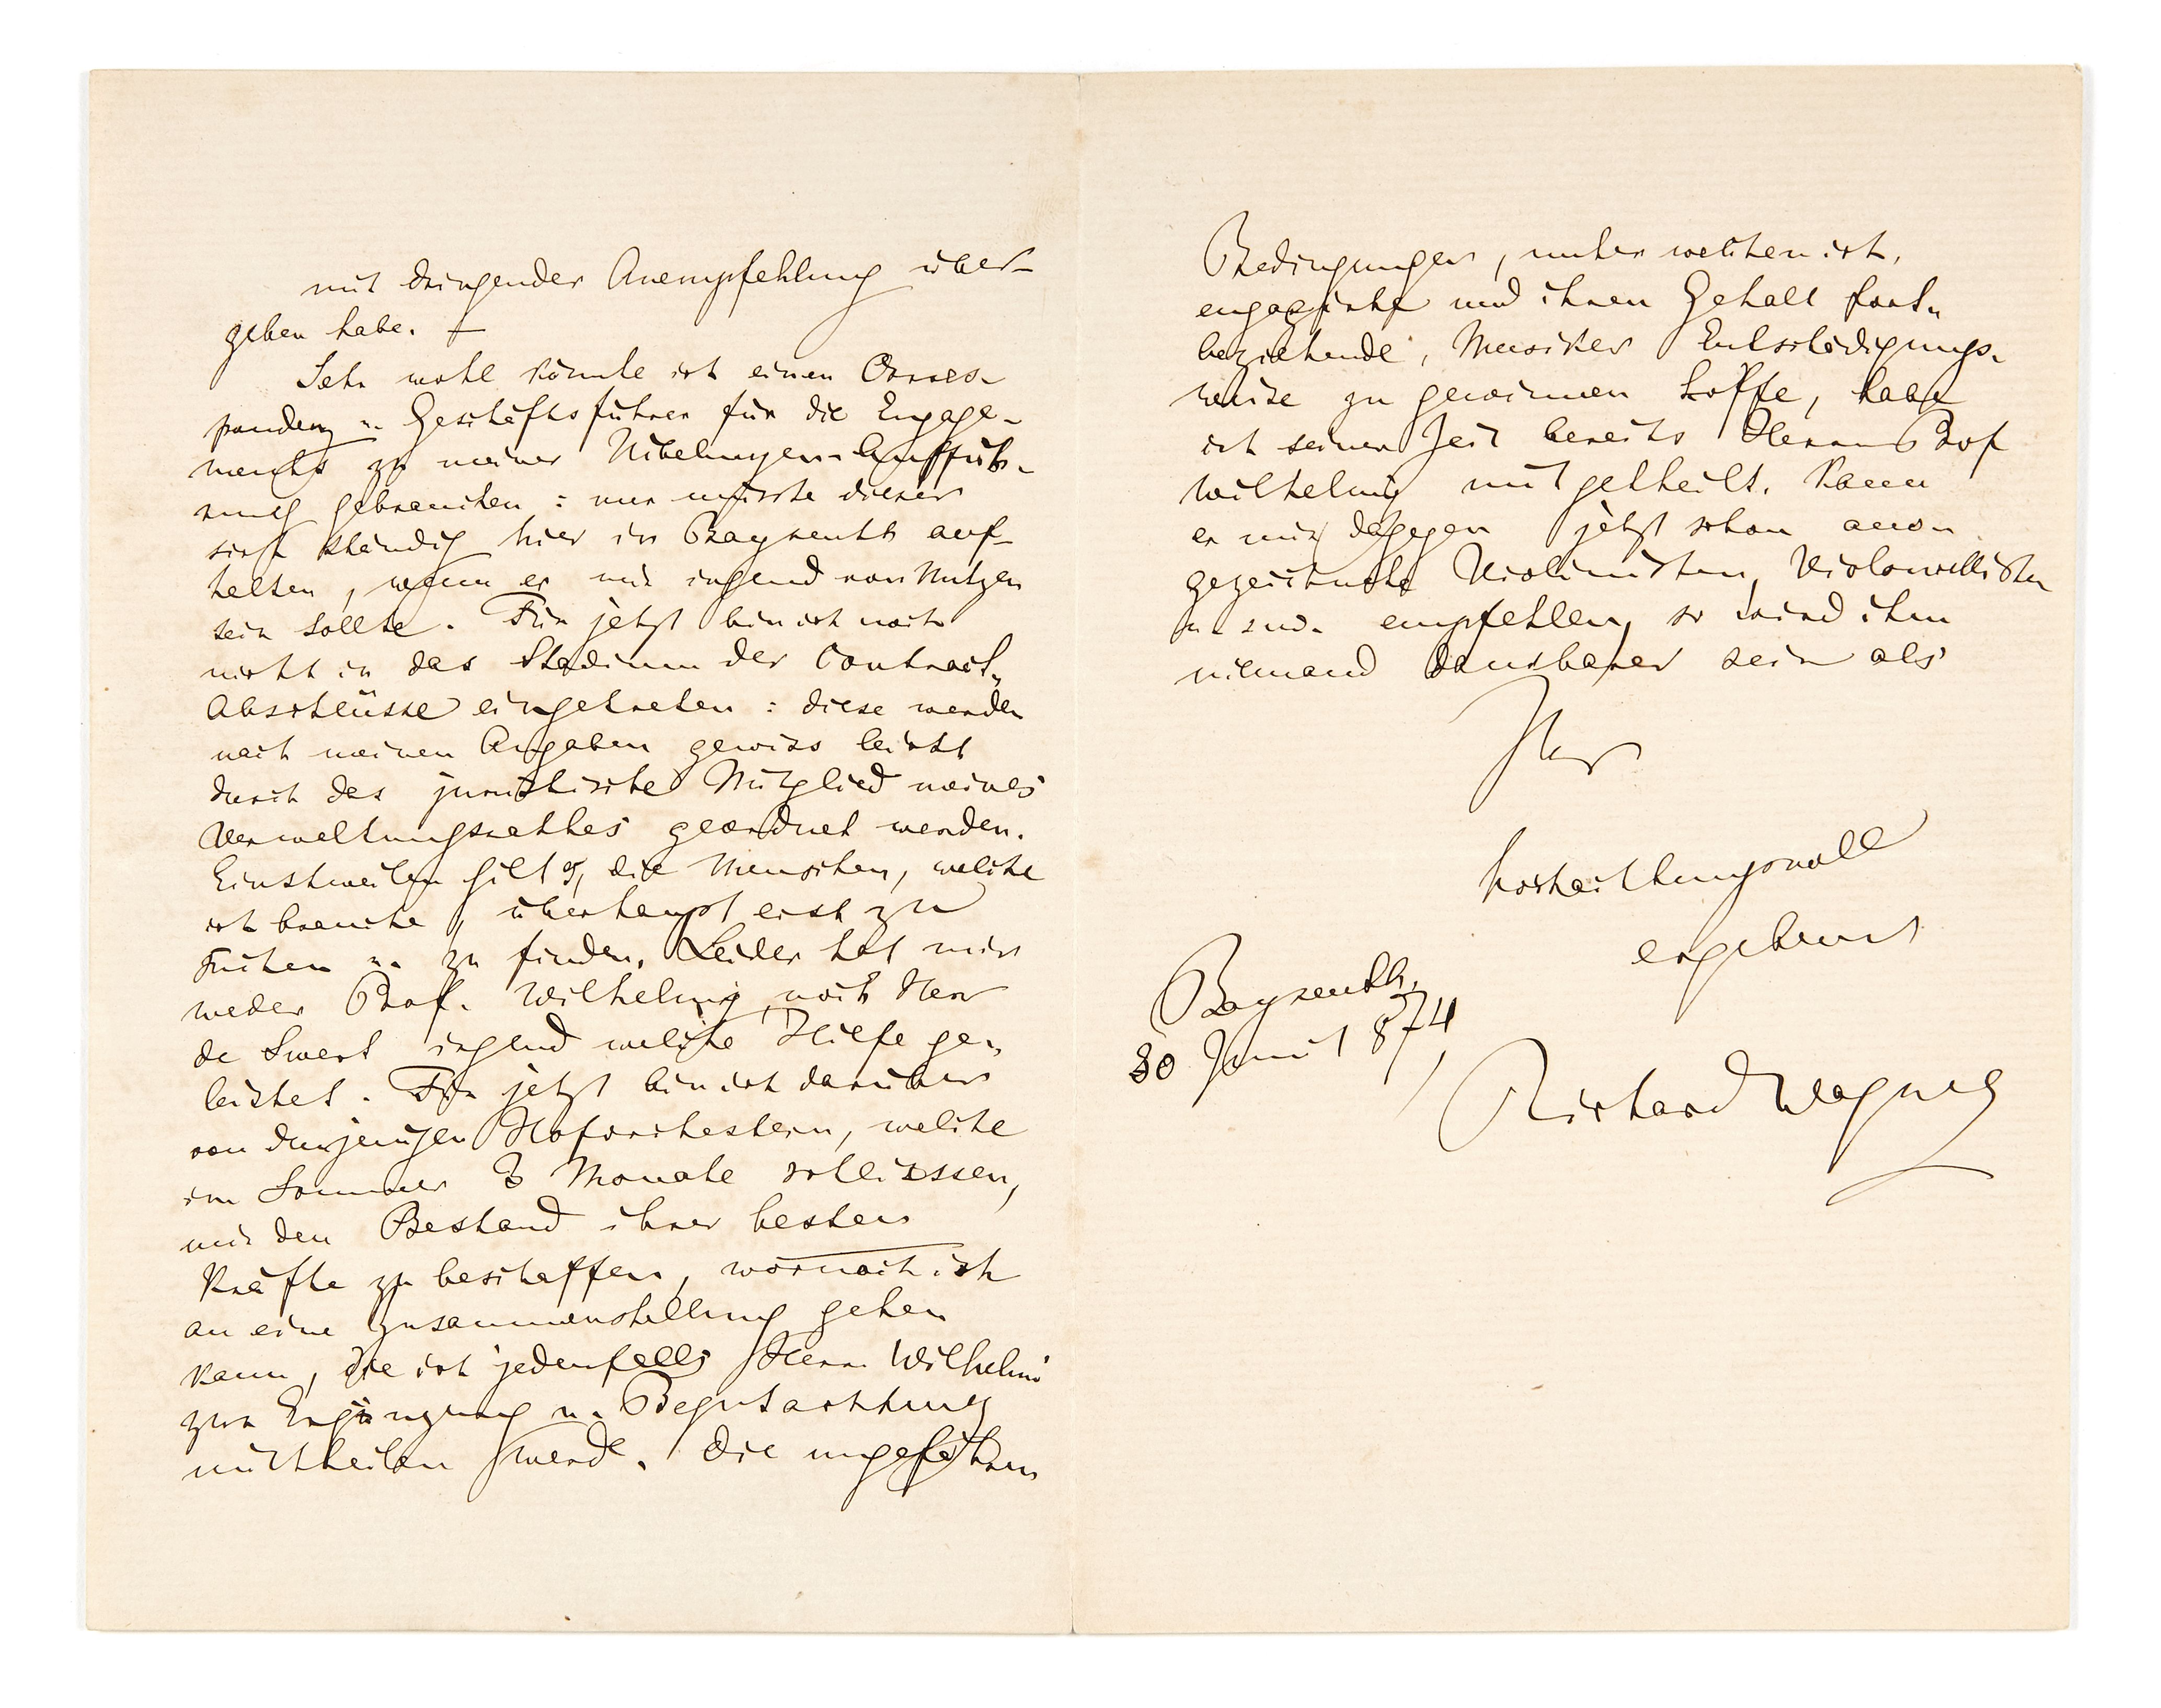 mit dringender Anempfehlung über-
geben habe. —
Sehr wohl könnte ich einen Corres-
pondenz u. Geschäftsführer für die Engage-
ments zu meiner Nibelungen-Auffüh-
rung gebrauchen: nur müsste dieser
sich ständig hier in Bayreuth auf-
halten, wenn er mir irgend von Nutzen
sein sollte. Für jetzt bin ich noch
nicht in das Stadium der Contract-
Abschlüsse eingetreten: diese werden
nach meinen Angaben gewiss leicht
durch das juristische Mitglied meines
Verwaltungsrathes geordnet werden.
Einstweilen gilt es, die Menschen, welche
ich brauche, überhaupt erst zu
suchen u. zu finden. Leider hat mir
weder Prof. Wilhelmj noch Herr
de Swert irgend welche Hilfe ge-
leistet. Für jetzt bin ich darüber
von denjenigen Hoforchestern, welche
im Sommer 3 Monate schliessen,
mir den Bestand ihrer besten
Kräfte zu beschaffen, wornach ich
an eine Zusammenstellung gehen
kann, die ich jedenfalls Herrn Wilhelmi
zur Ergänzung u. Begutachtung
mittheilen werde. Die ungefähren
Bedingungen, unter welchen ich,
engagirte und ihren Gehalt fort-
beziehende, Musiker Entschädigungs-
weise zu gewinnen hoffe, habe
ich seiner Zeit bereits Herrn Prof
Wilhelmj mitgetheilt. Kann
er mir dagegen jetzt schon
gezeichnete Violinisten, Violoncellisten
u s w. empfehlen, so wird ihm
niemand dankbarer sein als
Ihr
hochachtungsvoll
ergebenst
Bayreuth,
30 Juni 1874
Richard Wagner